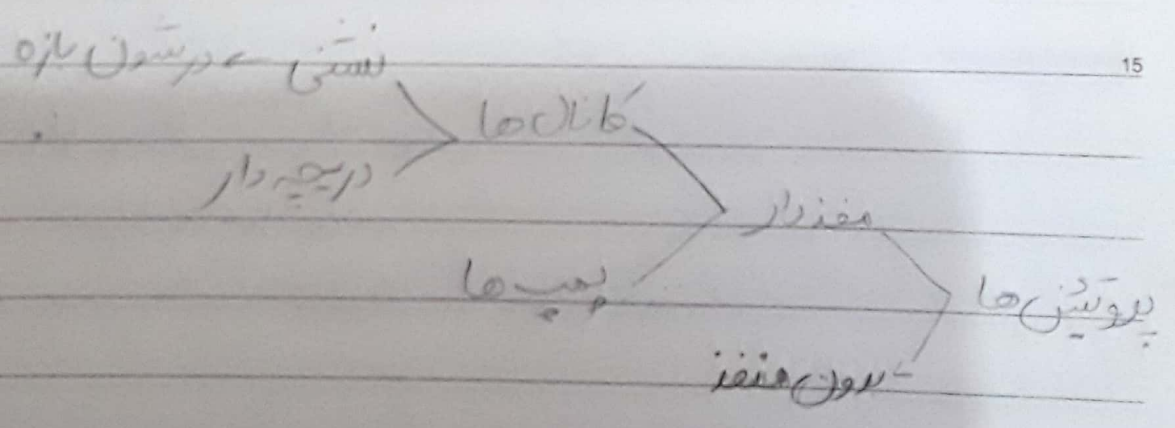 15
نشتی ← درشون بازه
کانال‌ها
دریچه دار
منفذدار
پمپ ها
پروتئین ها
بدون منفذ